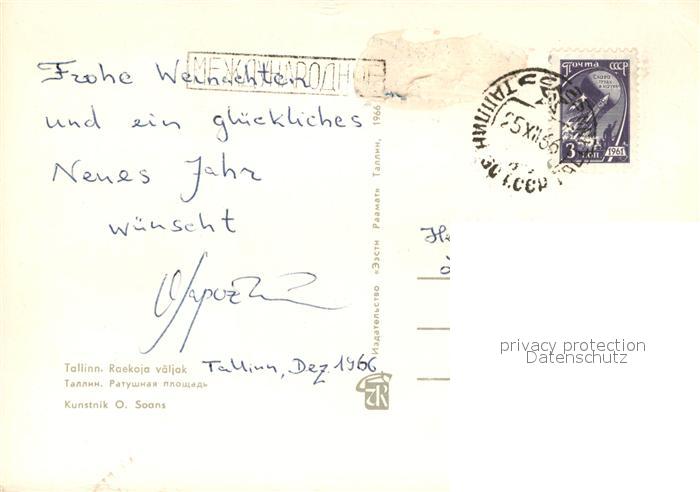 МЕЖДУНАРОДНОЕ
Frohe Weinachten
und ein glückliches
Neues Jahr
wünscht
Tallinn, Dez. 1966
Tallinn. Raekoja väljak
Таллин. Ратушная площадь
Kunstnik O. Soans
Издательство «Ээсти Раамат» Таллин, 1966
Почта СССР
СЛАВА
ТРУДУ
И НАУКЕ
3 КОП
1961
ТАЛЛИН
25 XII 66
privacy protection
Datenschutz